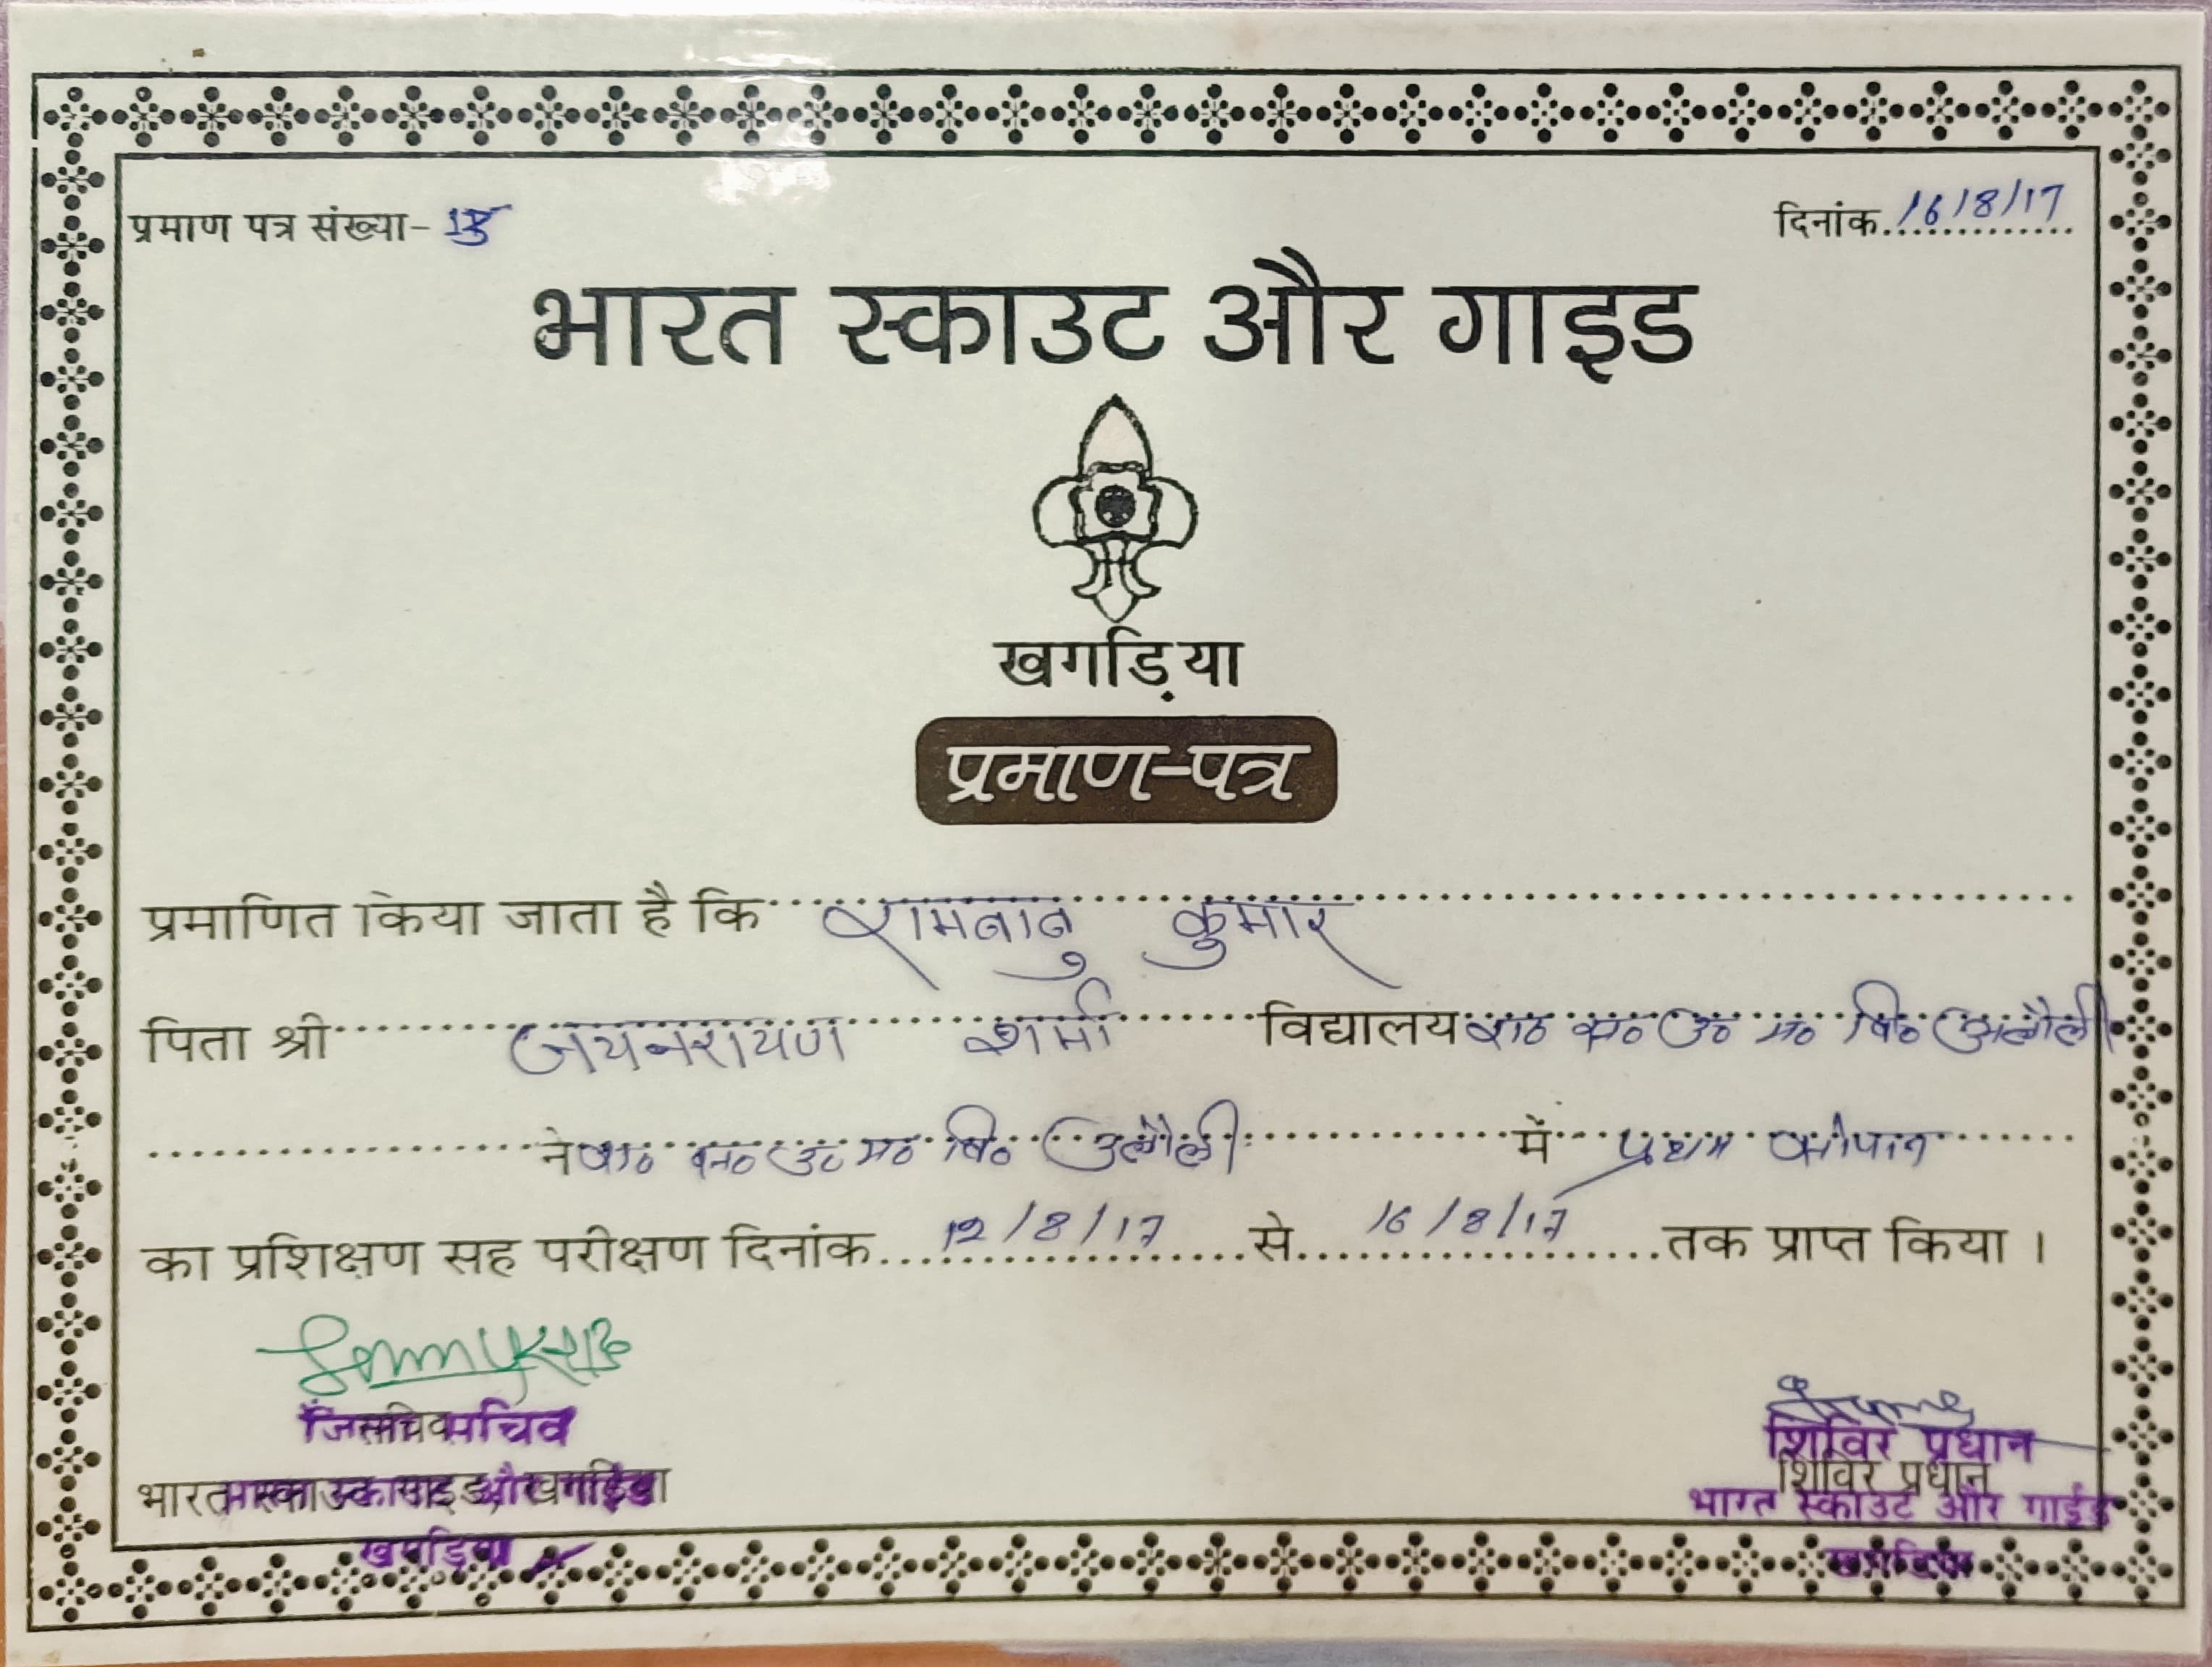 प्रमाण पत्र संख्या-
दिनांक 16/8/17
भारत स्काउट और गाइड
खगड़िया
प्रमाण-पत्र
प्रमाणित किया जाता है कि रामबाबु कुमार
पिता श्री जयनरायण शर्मा विद्यालय रा० क० उ० म० वि० अलौली
ने रा० क० उ० म० वि० अलौली में प्रथम सोपान
का प्रशिक्षण सह परीक्षण दिनांक 12/8/17 से 16/8/17 तक प्राप्त किया ।
सचिव
शिविर प्रधान
शिविर प्रधान
भारत स्काउट गाइड, खगड़िया
भारत स्काउट और गाईड
खगड़िया
खगड़िया